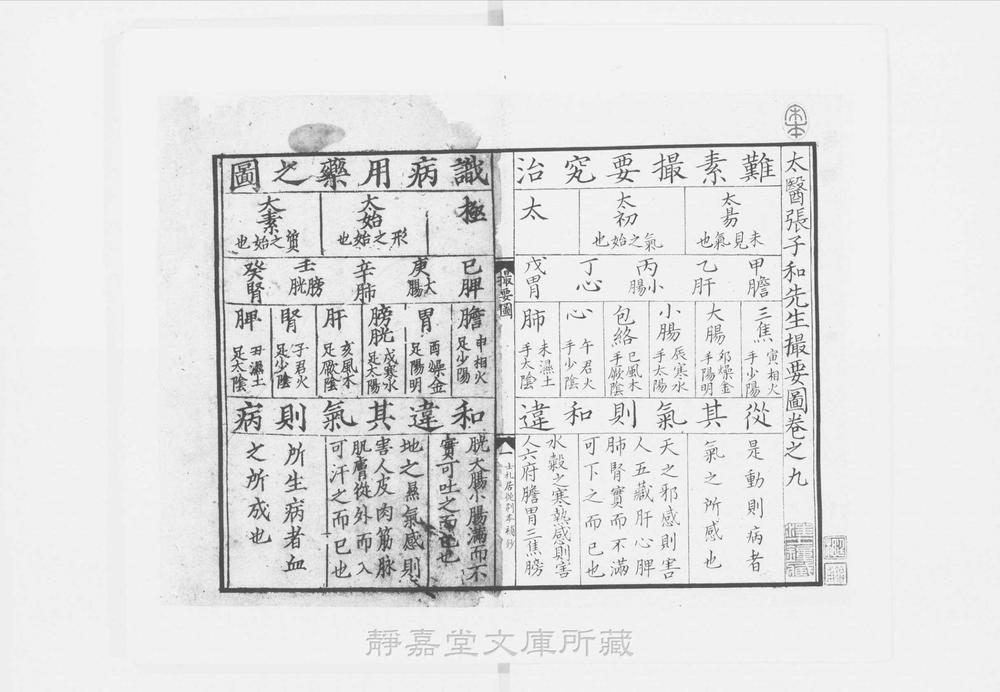 太醫張子和先生撮要圖卷之九
難素撮要究治
識病用藥之圖
太易
未見氣也
太初
氣之始也
太
極
太始
形之始也
太素
質之始也
甲膽
乙肝
丙小腸
丁心
戊胃
己脾
庚大腸
辛肺
壬膀胱
癸腎
三焦 寅相火 手少陽
大腸 卯燥金 手陽明
小腸 辰寒水 手太陽
包絡 巳風木 手厥陰
心 午君火 手少陰
肺 未濕土 手太陰
膽 申相火 足少陽
胃 酉燥金 足陽明
膀胱 戌寒水 足太陽
肝 亥風木 足厥陰
腎 子君火 足少陰
脾 丑濕土 足太陰
從其氣則和違
和違其氣則病
是動則病者
氣之所感也
天之邪感則害
人五藏肝心脾
肺腎實而不滿
可下之而已也
水穀之寒熱感則害
人六府膽胃三焦膀
胱大腸小腸滿而不
實可吐之而已也
地之濕氣感則
害人皮肉筋脉
肌膚從外而入
可汗之而已也
所生病者血
之所成也
撮要圖
一
士礼居從別本補抄
靜嘉堂文庫所藏